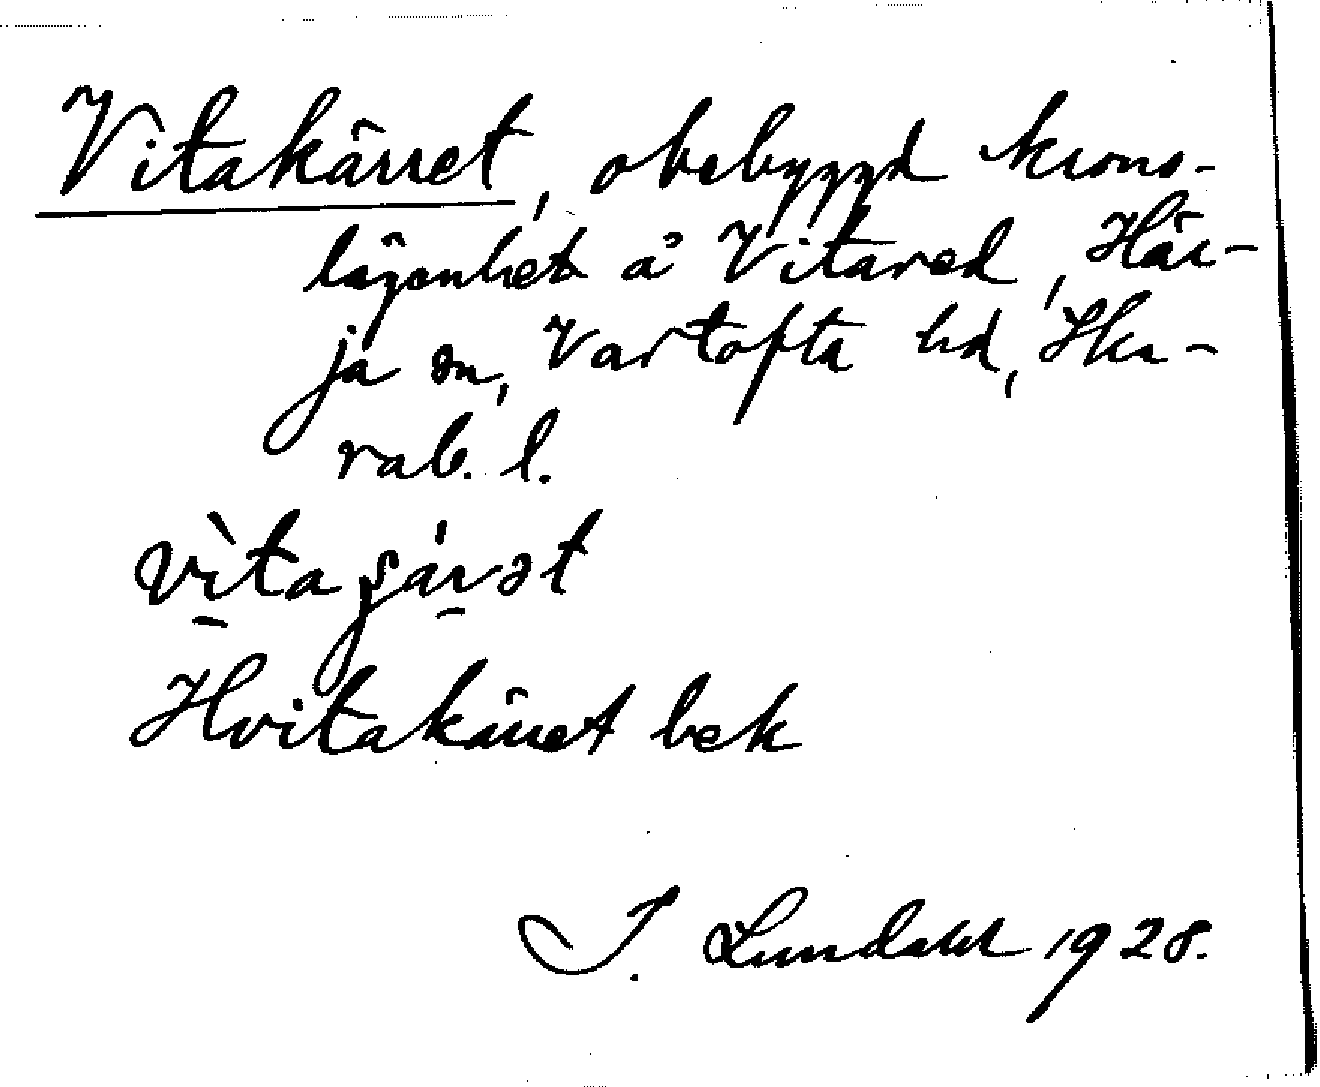 Vitakärret, obebyggd krons-
lägenhet å Vitared, Här-
ja sn, Vartofta hd, Ska-
rab. l.
vìta
Hvitakärret bek
I. Lundahl 1928.